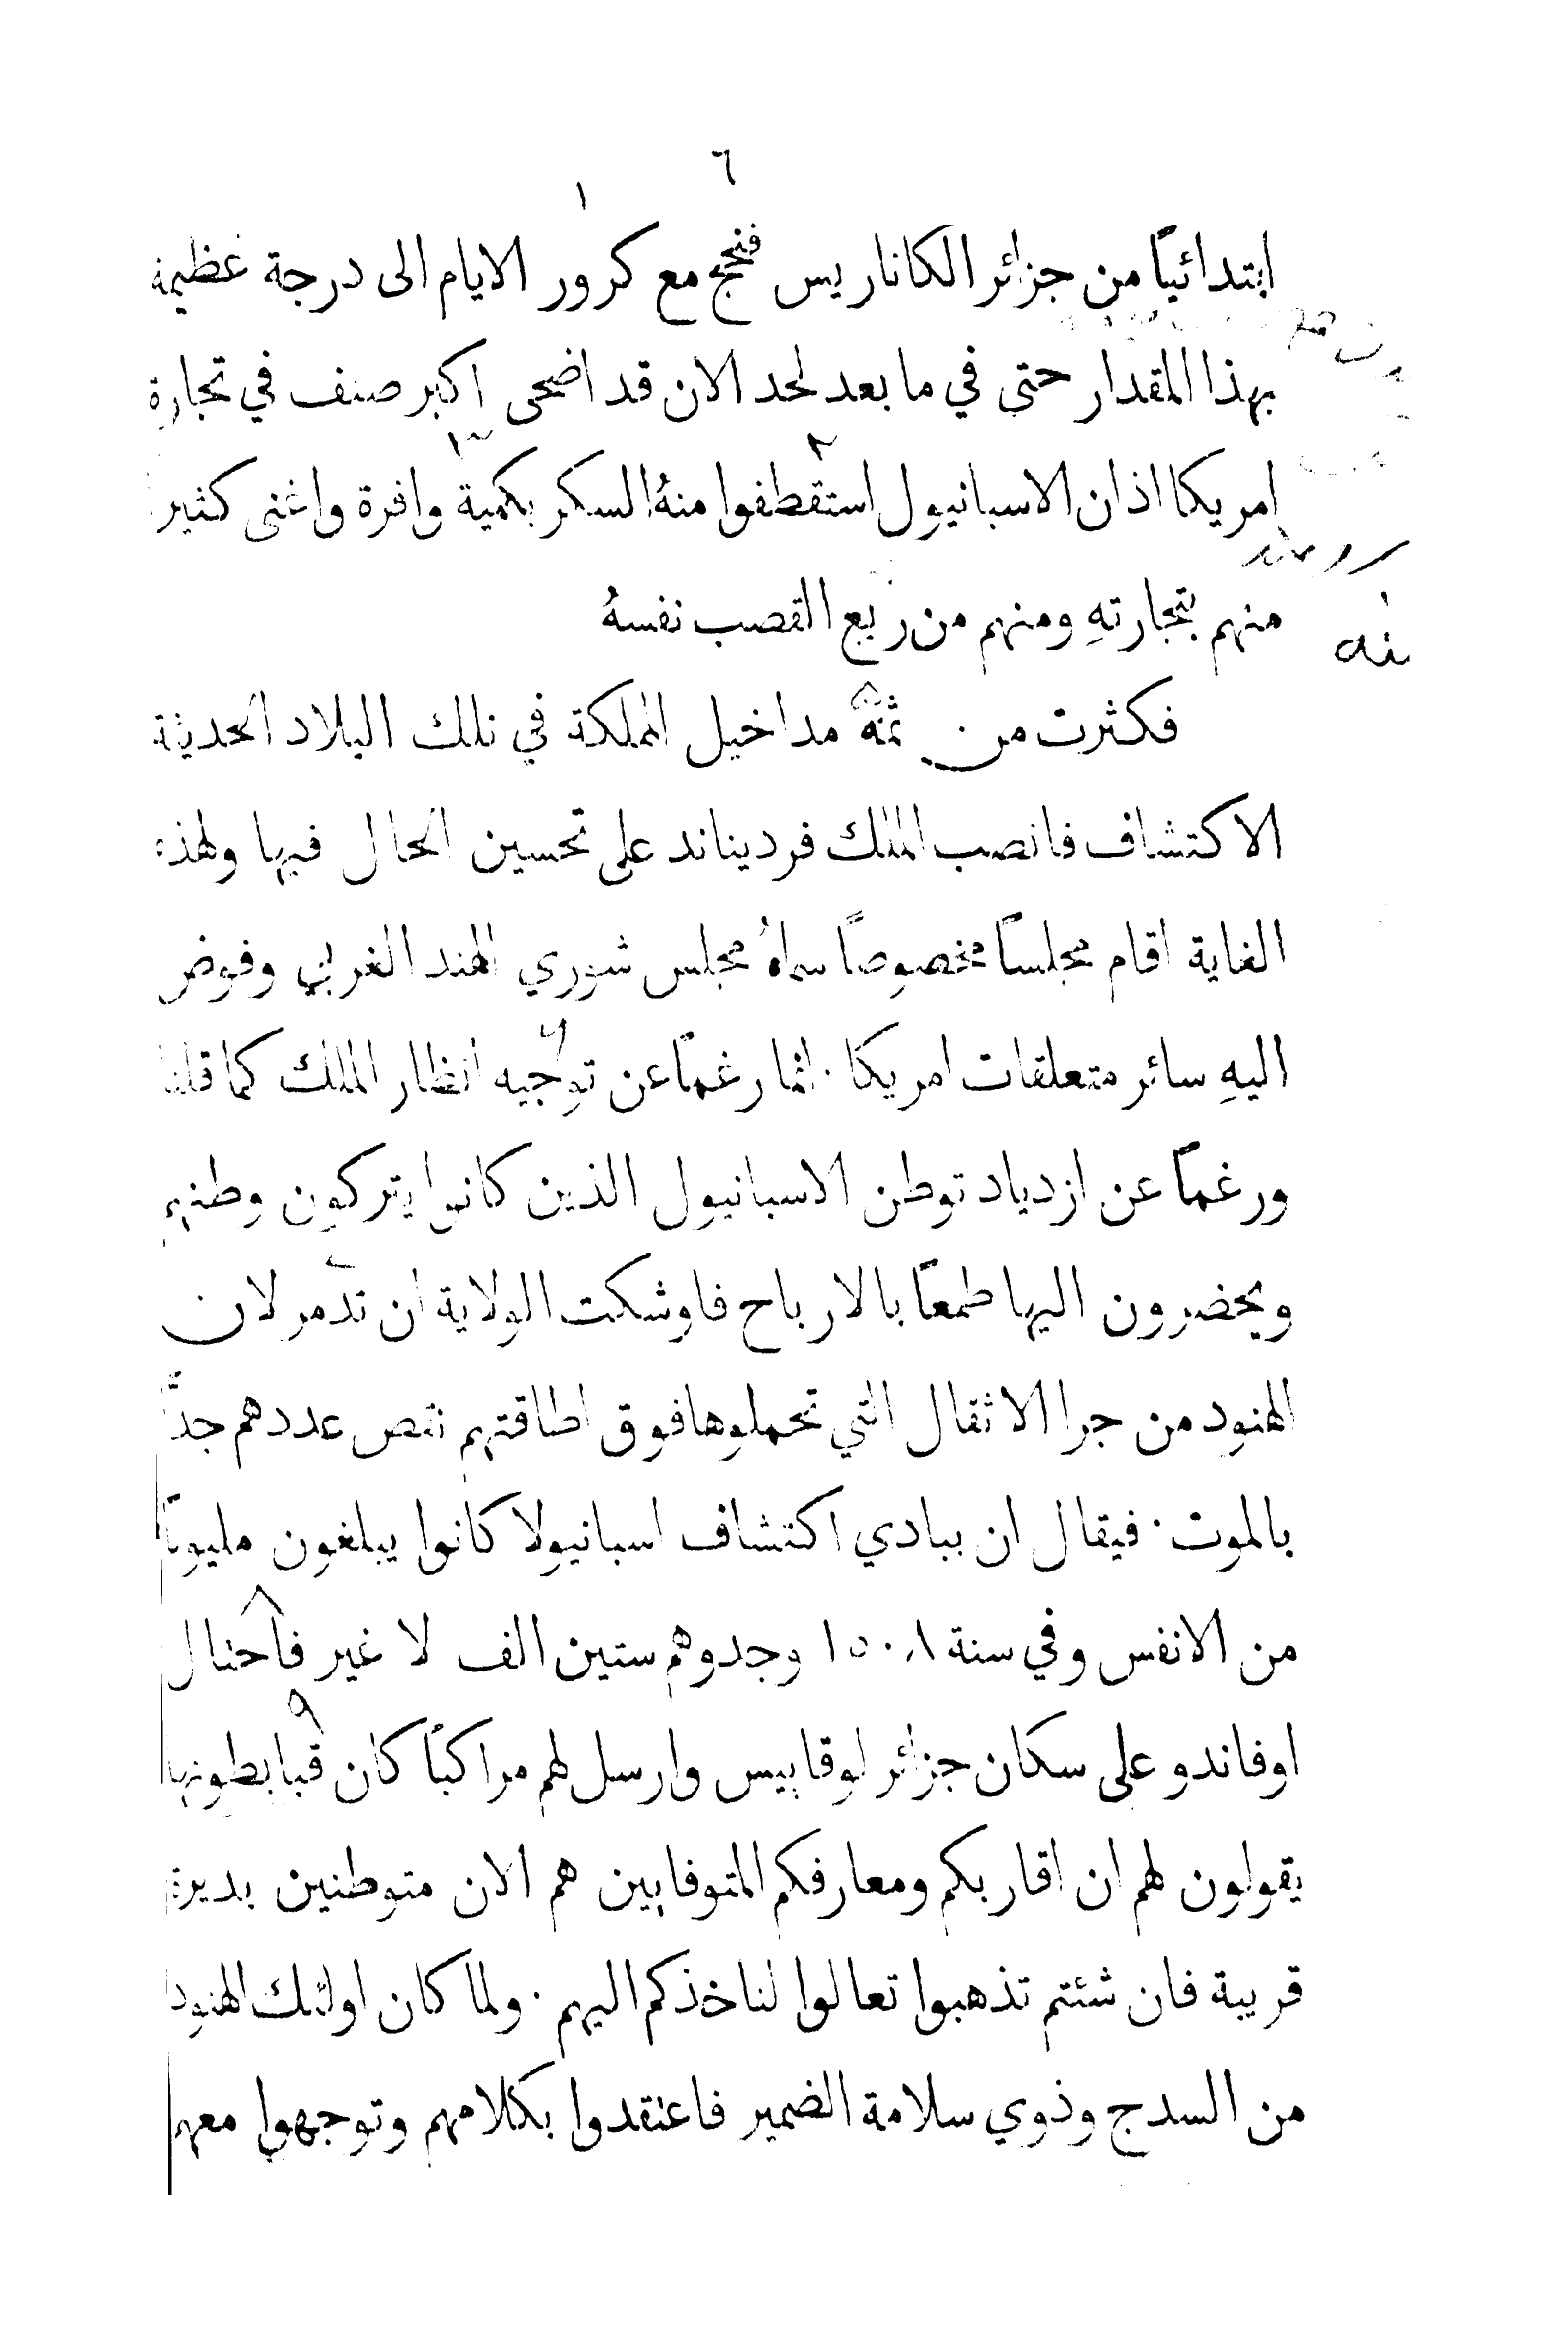 ٦
ابتدائياً من جزائر الكاناريس فنجح مع كرور الايام الى درجة عظيمة
بهذا المقدار حتى في ما بعد لحد الان قد اضحى اكبر صنف في تجارة
امريكا اذ ان الاسبانيول استقطفوا منهُ السكر بكمية وافرة واغنى كثير
منهم بتجارتهِ ومنهم من ريع القصب نفسهُ
فكثرت من ثمَّه مداخيل المملكة في تلك البلاد الحديثة
الاكتشاف فانصب الملك فرديناند على تحسين الحال فيها ولهذه
الغاية اقام مجلساً مخصوصاً سماهُ مجلس شوري الهند الغربي وفوض
اليهِ سائر متعلقات امريكا . انما رغماً عن توجيه انظار الملك كما قلنا
ورغماً عن ازدياد توطن الاسبانيول الذين كانوا يتركون وطنهم
ويحضرون اليها طمعاً بالارباح فاوشكت الولاية ان تدمر لان
الهنود من جرا الاثقال التي تحملوها فوق اطاقتهم نقص عددهم جدّاً
بالموت . فيقال ان ببادي اكتشاف اسبانيولا كانوا يبلغون مليوناً
من الانفس وفي سنة ١٥٠٨ وجدوهم ستين الف لا غير فاحتال
اوفاندو على سكان جزائر لوقاييس وارسل لهم مراكباً كان قبابطونها
يقولون لهم ان اقاربكم ومعارفكم المتوفايين هم الان متوطنين بديرة
قريبة فان شئتم تذهبوا تعالوا لناخذكم اليهم . ولما كان اولئك الهنود
من السدج وذوي سلامة الضمير فاعتقدوا بكلامهم وتوجهوا معهم